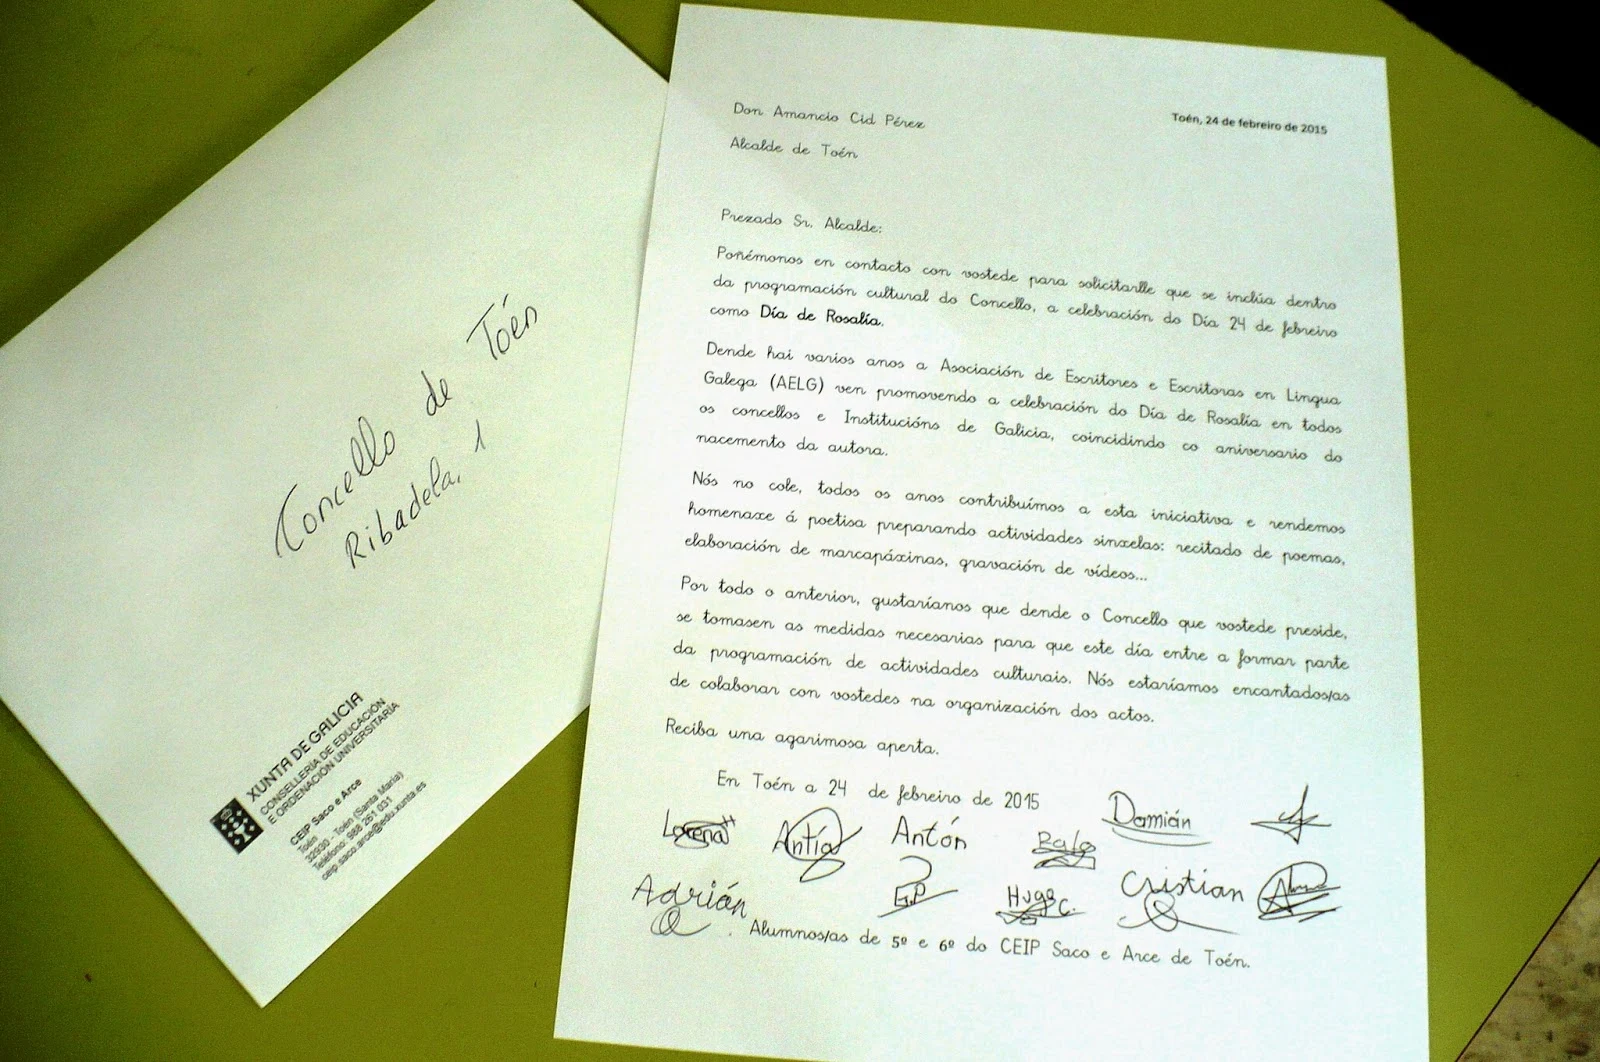 Concello de Toén
Ribadela, 1
XUNTA DE GALICIA
CONSELLERÍA DE EDUCACIÓN
E ORDENACIÓN UNIVERSITARIA
CEIP Saco e Arce
Toén
32930 - Toén (Santa María)
Teléfono: 988 261 031
ceip.saco.arce@edu.xunta.es
Toén, 24 de febreiro de 2015
Don Amancio Cid Pérez
Alcalde de Toén
Prezado Sr. Alcalde:
Poñémonos en contacto con vostede para solicitarlle que se inclúa dentro
da programación cultural do Concello, a celebración do Día 24 de febreiro
como Día de Rosalía.
Dende hai varios anos a Asociación de Escritores e Escritoras en Lingua
Galega (AELG) ven promovendo a celebración do Día de Rosalía en todos
os concellos e Institucións de Galicia, coincidindo co aniversario do
nacemento da autora.
Nós no cole, todos os anos contribuímos a esta iniciativa e rendemos
homenaxe á poetisa preparando actividades sinxelas: recitado de poemas,
elaboración de marcapáxinas, gravación de vídeos...
Por todo o anterior, gustaríanos que dende o Concello que vostede preside,
se tomasen as medidas necesarias para que este día entre a formar parte
da programación de actividades culturais. Nós estaríamos encantados/as
de colaborar con vostedes na organización dos actos.
Reciba una agarimosa aperta.
En Toén a 24 de febreiro de 2015
Lorena Antía Antón Damián
Adrián G.P Hugo C. Cristian
. Alumnos/as de 5º e 6º do CEIP Saco e Arce de Toén.